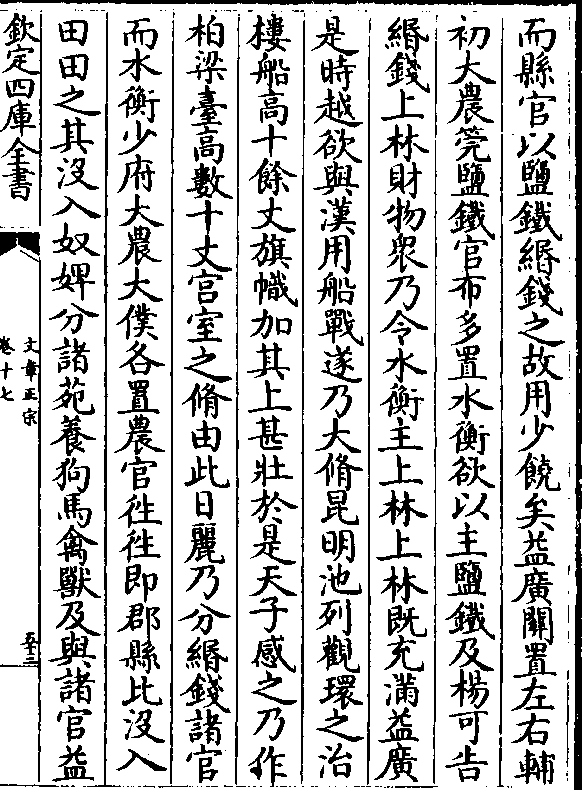 而縣官以鹽鐵緡錢之故用少饒矣益廣關置左右輔
初大農筦鹽鐵官布多置水衡欲以主鹽鐵及楊可告
緡錢上林財物衆乃令水衡主上林上林既充滿益廣
是時越欲與漢用船戰遂乃大脩昆明池列觀環之治
樓船高十餘丈旗幟加其上甚壯於是天子感之乃作
柏梁臺高數十丈宫室之脩由此日麗乃分緡錢諸官
而水衡少府大農大僕各置農官徃徃即郡縣比沒入
田田之其沒入奴婢分諸苑養狗馬禽獸及與諸官益
欽定四庫全書
文章正宗
卷十七